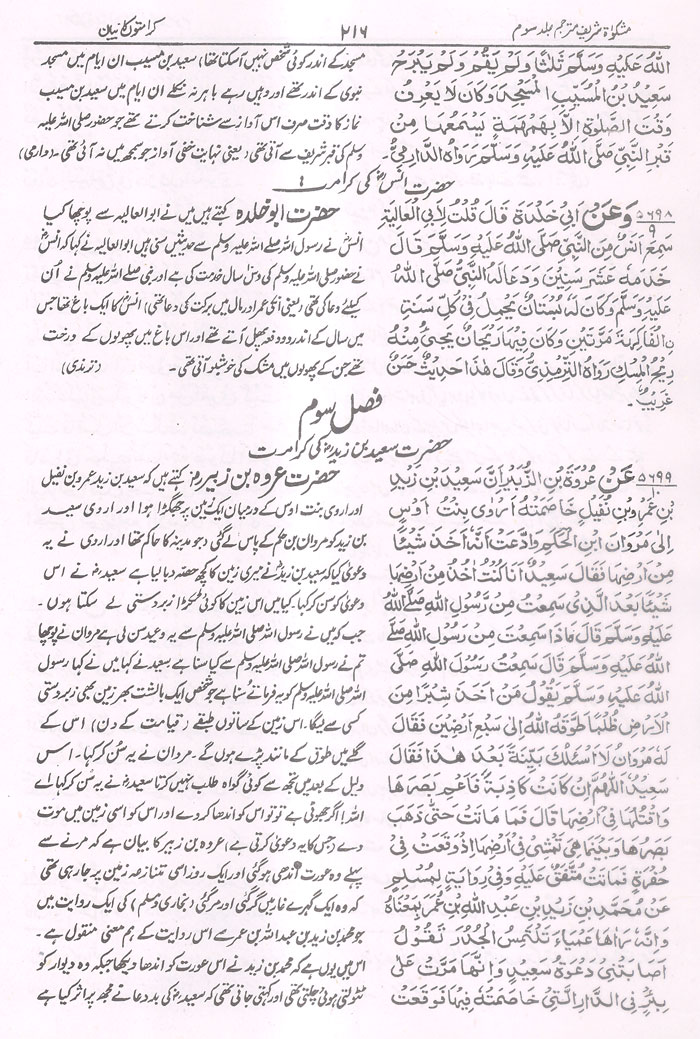 مشکوٰۃ شریف مترجم جلد سوم
۲۱۶
کرامتوں کا بیان
اللهُ عَلَيْهِ وَسَلَّمَ ثَلٰثًا وَلَمْ يَقُمْ وَلَمْ يَبْرَحْ
سَعِيْدُ بْنُ الْمُسَيِّبِ الْمَسْجِدَ وَكَانَ لَا يَعْرِفُ
وَقْتَ الصَّلٰوةِ اِلَّا بِهَمْهَمَةٍ يَسْمَعُهَا مِنْ
قَبْرِ النَّبِيِّ صَلَّى اللهُ عَلَيْهِ وَسَلَّمَ رَوَاهُ الدَّارِمِيُّ۔
مسجد کے اندر کوئی شخص نہیں آسکتا تھا) سعید بن مسیب ان ایام میں مسجد
نبوی کے اندر تھے اور وہیں رہے باہر نہ نکلے ان ایام میں سعید بن مسیب
نماز کا وقت صرف اس آواز سے شناخت کرتے تھے جو حضور صلی اللہ علیہ
وسلم کی قبر شریف سے آتی تھی (یعنی نہایت خفی آواز جو سمجھ میں نہ آتی تھی۔ (دارمی)
حضرت انسؓ کی کرامت
۵۶۹۸
۹
وَعَنْ اَبِيْ خَلْدَةَ قَالَ قُلْتُ لِاَبِي الْعَالِيَةِ
سَمِعَ اَنَسٌ مِنَ النَّبِيِّ صَلَّى اللهُ عَلَيْهِ وَسَلَّمَ قَالَ
خَدَمَهٗ عَشَرَ سِنِيْنَ وَدَعَا لَهُ النَّبِيُّ صَلَّى اللهُ
عَلَيْهِ وَسَلَّمَ وَكَانَ لَهٗ بُسْتَانٌ يَحْمِلُ فِيْ كُلِّ سَنَةِ
نِ الْفَاكِهَةَ مَرَّتَيْنِ وَكَانَ فِيْهَا رَيْحَانٌ يَجِيْئُ مِنْهُ
رِيْحُ الْمِسْكِ رَوَاهُ التِّرْمِذِيُّ وَقَالَ هٰذَا حَدِيْثٌ حَسَنٌ
غَرِيْبٌ۔
حضرت ابو خلدہ کہتے ہیں میں نے ابو العالیہ سے پوچھا کیا
انسؓ نے رسول اللہ صلے اللہ علیہ وسلم سے حدیثیں سنی ہیں ابو العالیہ نے کہا کہ انسؓ
نے حضور صلی اللہ علیہ وسلم کی دس سال خدمت کی ہے اور نبی صلے اللہ علیہ وسلم نے اُن
کیلئے دعا کی تھی (یعنی انکی عمر اور مال میں برکت کی دعا کی تھی) انسؓ کا ایک باغ تھا جس
میں سال کے اندر دو دفعہ پھل آتے تھے اور اس باغ میں پھولوں کے درخت
تھے جن کے پھولوں میں مشک کی خوشبو آتی تھی۔ (ترمذی)
فصل سوم
حضرت سعید بن زیدؓ کی کرامت
۵۶۹۹
عَنْ عُرْوَةَ بْنِ الزُّبَيْرِ اَنَّ سَعِيْدَ بْنَ زَيْدِ
بْنِ عَمْرِو بْنِ نُفَيْلٍ خَاصَمَتْهُ اَرْوٰى بِنْتُ اَوْسٍ
اِلٰى مَرْوَانَ ابْنِ الْحَكَمِ وَادَّعَتْ اَنَّهٗ اَخَذَ شَيْئًا
مِنْ اَرْضِهَا فَقَالَ سَعِيْدٌ اَنَا كُنْتُ اٰخُذُ مِنْ اَرْضِهَا
شَيْئًا بَعْدَ الَّذِيْ سَمِعْتُ مِنْ رَّسُوْلِ اللهِ صَلَّى اللهُ
عَلَيْهِ وَسَلَّمَ قَالَ مَاذَا سَمِعْتَ مِنْ رَسُوْلِ اللهِ صَلَّى
اللهُ عَلَيْهِ وَسَلَّمَ قَالَ سَمِعْتُ رَسُوْلَ اللهِ صَلَّى
اللهُ عَلَيْهِ وَسَلَّمَ يَقُوْلُ مَنْ اَخَذَ شِبْرًا مِنَ
الْاَرْضِ ظُلْمًا طَوَّقَهُ اللهُ اِلٰى سَبْعِ اَرْضِيْنَ فَقَالَ
لَهٗ مَرْوَانُ لَا اَسْئَلُكَ بَيِّنَةً بَعْدَ هٰذَا فَقَالَ
سَعِيْدٌ اَللّٰهُمَّ اِنْ كَانَتْ كَاذِبَةً فَاَعْمِ بَصَرَهَا
وَاقْتُلْهَا فِيْ اَرْضِهَا قَالَ فَمَا مَاتَتْ حَتّٰى ذَهَبَ
بَصَرُهَا وَبَيْنَمَا هِيَ تَمْشِيْ فِيْ اَرْضِهَا اِذْ وَقَعَتْ فِيْ
حُفْرَةٍ فَمَاتَتْ مُتَّفَقٌ عَلَيْهِ وَفِيْ رِوَايَةٍ لِمُسْلِمٍ
عَنْ مُحَمَّدِ بْنِ زَيْدِ بْنِ عَبْدِ اللهِ بْنِ عُمَرَ بِمَعْنَاهُ
وَاَنَّهٗ رَاٰهَا عَمْيَاءَ تَلْتَمِسُ الْجُدُرَ تَقُوْلُ
اَصَابَتْنِيْ دَعْوَةُ سَعِيْدٍ وَاِنَّهَا مَرَّتْ عَلٰى
بِئْرٍ فِي الدَّارِ الَّتِيْ خَاصَمَتْهُ فِيْهَا فَوَقَعَتْ
حضرت عروہ بن زبیرؓ کہتے ہیں کہ سعید بن زید عمرو بن نفیل
اور اروی بنت اوس کے درمیان ایک زمین پر جھگڑا ہوا اور اروی سعید
بن زید کو مروان بن حکم کے پاس لے گئی (جو مدینہ کا حاکم تھا) اور اروی نے یہ
دعویٰ کیا کہ سعید بن زیدؓ نے میری زمین کا کچھ حصہ دبا لیا ہے سعیدؓ نے اس
دعویٰ کو سن کر کہا۔ کیا میں اس زمین کا کوئی ٹکڑا زبردستی لے سکتا ہوں۔
جب کہ میں نے رسول اللہ صلی اللہ علیہ وسلم سے یہ وعید سن لی ہے مروان نے پوچھا
تم نے رسول اللہ صلی اللہ علیہ وسلم سے کیا سنا ہے سعید نے کہا میں نے کہا رسول
اللہ صلی اللہ علیہ وسلم کو یہ فرماتے سنا ہے جو شخص ایک بالشت بھر زمین بھی زبردستی
کسی سے لیگا۔ اس زمین کے ساتوں طبقے (قیامت کے دن) اس کے
گلے میں طوق کے مانند پڑے ہوں گے۔ مروان نے یہ سُن کر کہا۔ اس
دلیل کے بعد میں تجھ سے کوئی گواہ طلب نہیں کرتا سعیدؓ نے یہ سُن کر کہا اے
اللہ! اگر جھوٹی ہے تو تو اس کو اندھا کر دے اور اس کو اسی زمین میں موت
دے (جس کا یہ دعویٰ کرتی ہے) عروہ بن زبیر کا بیان ہے کہ مرنے سے
پہلے وہ عورت اندھی ہو گئی اور ایک روز اسی متنازعہ زمین پر جا رہی تھی
کہ وہ ایک گہرے غار میں گر گئی اور مر گئی (بخاری و مسلم) کی ایک روایت میں
جو محمد بن زید بن عبد اللہ بن عمر سے اس روایت کے ہم معنی منقول ہے۔
اس میں یوں ہے کہ محمد بن زید نے اس عورت کو اندھا دیکھا جبکہ وہ دیوار کو
ٹٹولتی ہوئی چلتی تھی اور کہتی جاتی تھی کہ سعیدؓ کی بد دعا نے مجھ پر اثر کیا ہے